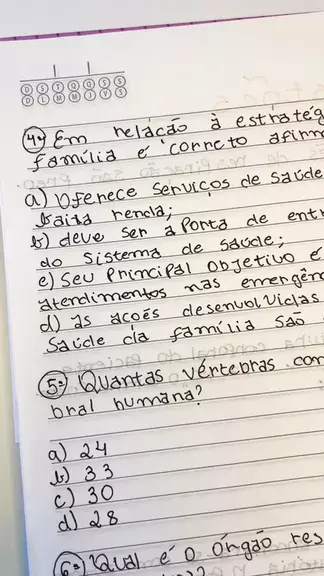 D S T Q Q S S
D L M M J V S
4ª Em relação à estratég
família é correto afirm
a) Oferece serviços de saúde
baixa renda;
b) deve ser a porta de ent
do sistema de saúde;
c) seu principal objetivo é
atendimentos nas emergên
d) as ações desenvolvidas
saúde da família são
5ª Quantas vértebras com
bral humana?
a) 24
b) 33
c) 30
d) 28
6ª Qual é o órgão res